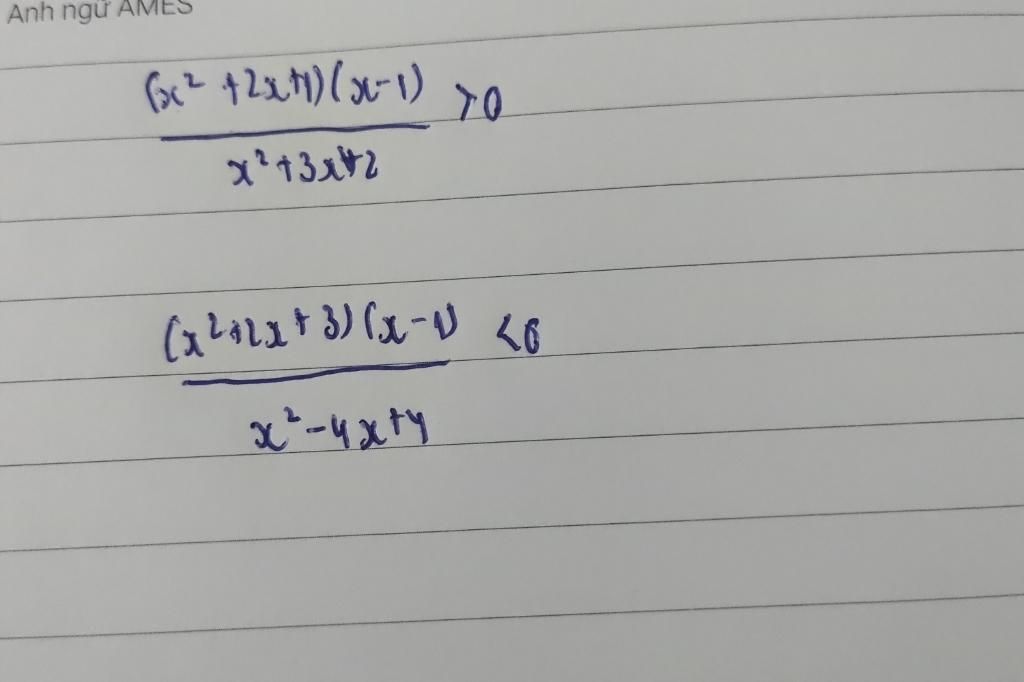 Anh ngữ AMES
(x² + 2x + 1)(x - 1) > 0
x² + 3x + 2
(x² + 2x + 3)(x - 1) < 0
x² - 4x + 4